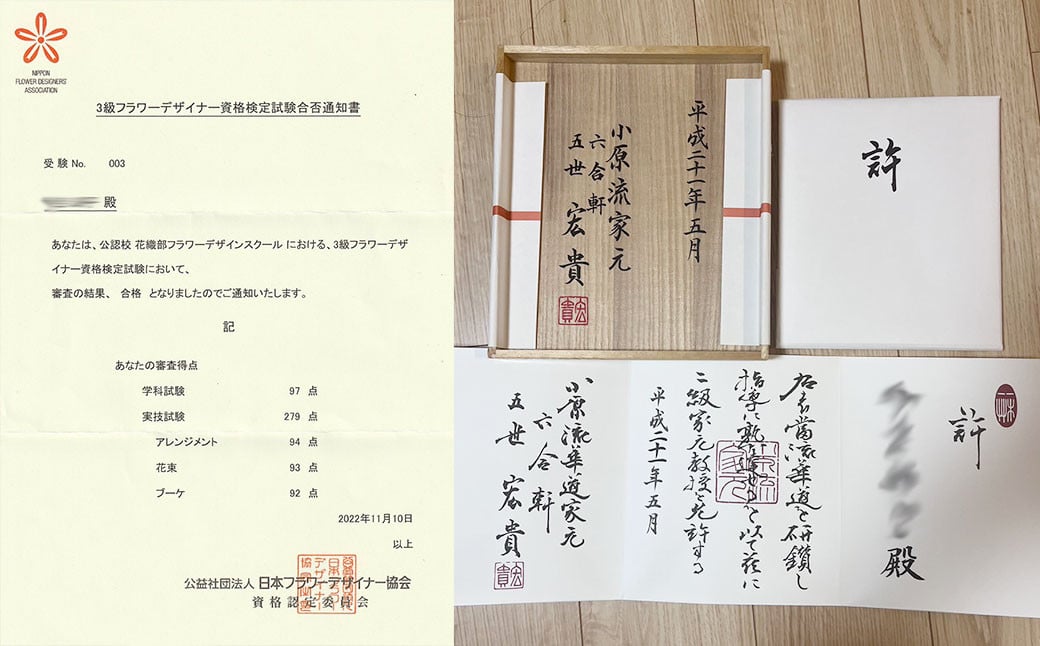 NIPPON
FLOWER DESIGNERS'
ASSOCIATION
3級フラワーデザイナー資格検定試験合否通知書
受験No. 003
殿
あなたは、公認校 花織部フラワーデザインスクール における、3級フラワーデザ
イナー資格検定試験において、
審査の結果、 合格 となりましたのでご通知いたします。
記
あなたの審査得点
学科試験 97 点
実技試験 279 点
アレンジメント 94 点
花束 93 点
ブーケ 92 点
2022年11月10日
以上
公益社団法人 日本フラワーデザイナー協会
資格認定委員会
平成二十一年五月
小原流家元
六合軒
五世 宏貴
許
許
殿
右者當流華道を研鑽し
指導に熟達せるを以て茲に
二級家元教授を免許する
平成二十一年五月
小原流華道家元
六合軒
五世 宏貴